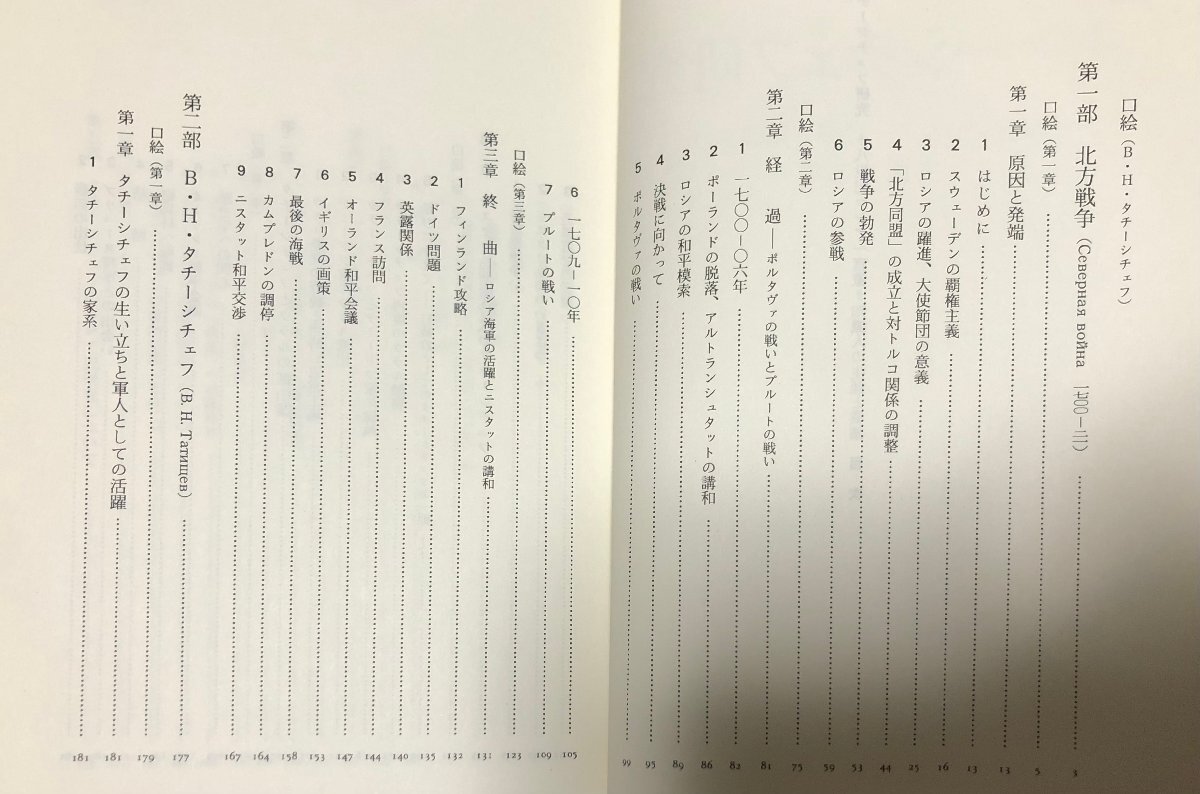 口絵(B・H・タチーシチェフ)
第一部 北方戦争(Северная война 一七〇〇―二一) 3
口絵(第一章) 5
第一章 原因と発端 13
1 はじめに 13
2 スウェーデンの覇権主義 16
3 ロシアの躍進、大使節団の意義 25
4 「北方同盟」の成立と対トルコ関係の調整 44
5 戦争の勃発 53
6 ロシアの参戦 59
口絵(第二章) 75
第二章 経 過――ポルタヴァの戦いとプルートの戦い 81
1 一七〇〇―〇六年 82
2 ポーランドの脱落、アルトランシュタットの講和 86
3 ロシアの和平模索 89
4 決戦に向かって 95
5 ポルタヴァの戦い 99
6 一七〇九―一〇年 105
7 プルートの戦い 109
口絵(第三章) 123
第三章 終 曲――ロシア海軍の活躍とニスタットの講和 131
1 フィンランド攻略 132
2 ドイツ問題 135
3 英露関係 140
4 フランス訪問 144
5 オーランド和平会議 147
6 イギリスの画策 153
7 最後の海戦 158
8 カムプレドンの調停 164
9 ニスタット和平交渉 167
第二部 B・H・タチーシチェフ(В. Н. Татищев) 177
口絵(第一章) 179
第一章 タチーシチェフの生い立ちと軍人としての活躍 181
1 タチーシチェフの家系 181